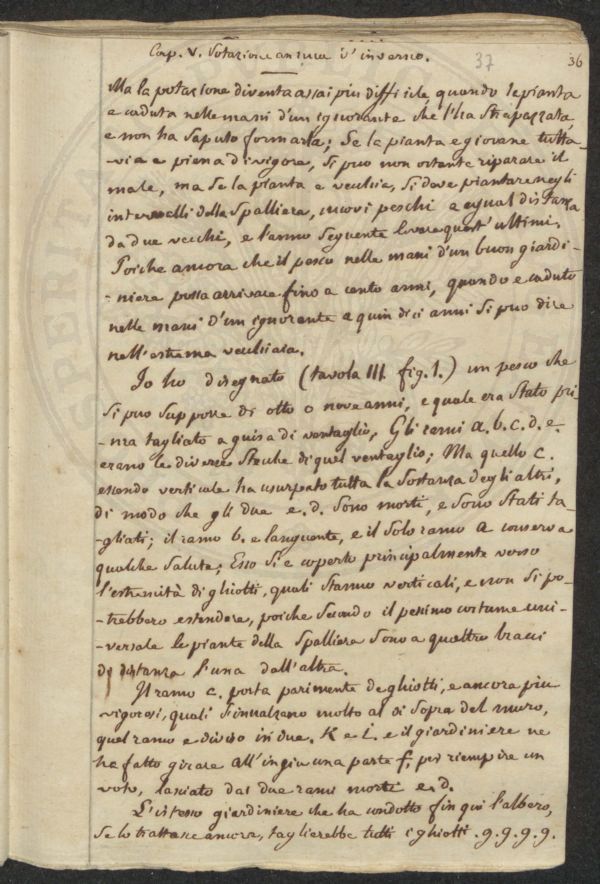 Cap. V. Potazione annua d'inverno.
37
36
Ma la potazione diventa assai più difficile, quando le pianta
e caduta nelle mani d'un ignorante che l'ha strapazzata
e non ha saputo formarla; Se la pianta e giovane tutta-
via e piena di vigore, si può non ostante riparare il
male, ma se la pianta e vecchia, si deve piantare negli
intervalli della Spalliera, nuovi peschi a egual distanza
da due vecchi, e l'anno seguente levare quest'ultimi.
Poiche ancora che il pesco nelle mani d'un buon giardi-
-niere possa arrivare fino a cento anni, quando e caduto
nelle mani d'un ignorante a quindici anni si puo dire
nell'estrema vecchiaia.
Io ho disegnato (tavola III. fig. 1.) un pesco che
si puo supporre di otto o nove anni, e quale era stato pri
-ma tagliato a guisa di ventaglio, Gli rami a. b. c. d. e.
erano le diverse stecche di quel ventaglio; Ma quello c.
essendo verticale ha usurpato tutta la sostanza degli altri,
di modo che gli due e. d. sono morti, e sono stati ta-
gliati; il ramo b. e languente, e il solo ramo a conserva
qualche salute; Esso si e coperto principalmente verso
l'estremità di ghiotti, quali stanno verticali, e non si po-
-trebbero estendere, poiche secondo il pessimo costume uni-
-versale le piante della Spalliera sono a quattro bracci
di distanza l'una dall'altra.
Il ramo c. porta parimente de ghiotti, e ancora più
vigorosi, quali s'inualzano molto al di sopra del muro,
quel ramo e diviso in due. K e i. e il giardiniere ne
ha fatto girare all'ingiu una parte f. per riempire un
voto, lasciato dai due rami morti e. d.
L'istesso giardiniere che ha condotto fin qui l'albero,
se lo trattasse ancora, taglierebbe tutti i ghiotti. g. g. g. g.